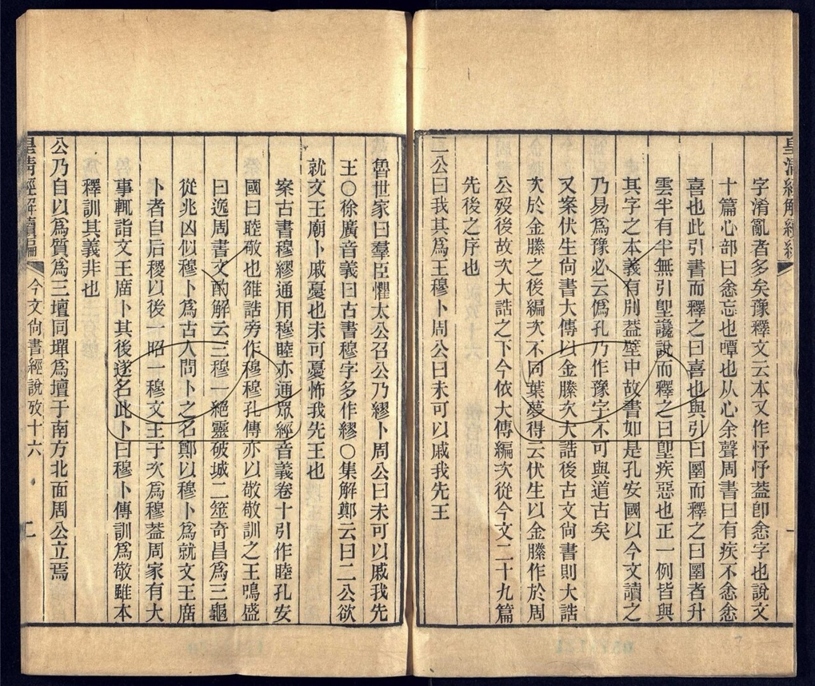 皇清經解續編
字淆亂者多矣豫釋文云本又作忬忬蓋卽悆字也說文
十篇心部曰悆忘也嘾也从心余聲周書曰有疾不悆悆
喜也此引書而釋之曰喜也與引曰圛而釋之曰圛者升
雲半有半無引聖讒說而釋之曰聖疾惡也正一例皆與
其字之本義有別蓋壁中故書如是孔安國以今文讀之
乃易爲豫必云僞孔乃作豫字不可與道古矣
又案伏生尙書大傳以金縢次大誥後古文尙書則大誥
次於金縢之後編次不同葉夢得云伏生以金縢作於周
公歿後故次大誥之下今依大傳編次從今文二十九篇
先後之序也
二公曰我其爲王穆卜周公曰未可以戚我先王
魯世家曰羣臣懼太公召公乃繆卜周公曰未可以戚我先
王○徐廣音義曰古書穆字多作繆○集解鄭云曰二公欲
就文王廟卜戚憂也未可憂怖我先王也
案古書穆繆通用穆睦亦通眾經音義卷十引作睦孔安
國曰睦敬也雒誥旁作穆穆孔傳亦以敬敬訓之王鳴盛
曰逸周書文酌解云三穆一絕靈破城二筮奇昌爲三龜
從兆凶似穆卜爲古人問卜之名鄭以穆卜爲就文王廟
卜者自后稷以後一昭一穆文王于次爲穆蓋周家有大
事輒詣文王廟卜其後遂名此卜曰穆卜傳訓爲敬雖本
釋訓其義非也
公乃自以爲質爲三壇同墠爲壇于南方北面周公立焉
皇清經解續編
今文尙書經說攷十六
二